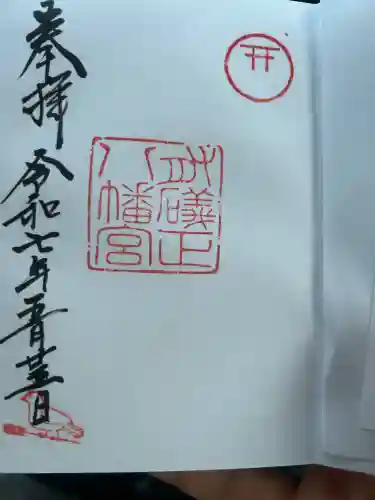 奉拝
令和七年五月廿五日
正八幡宮